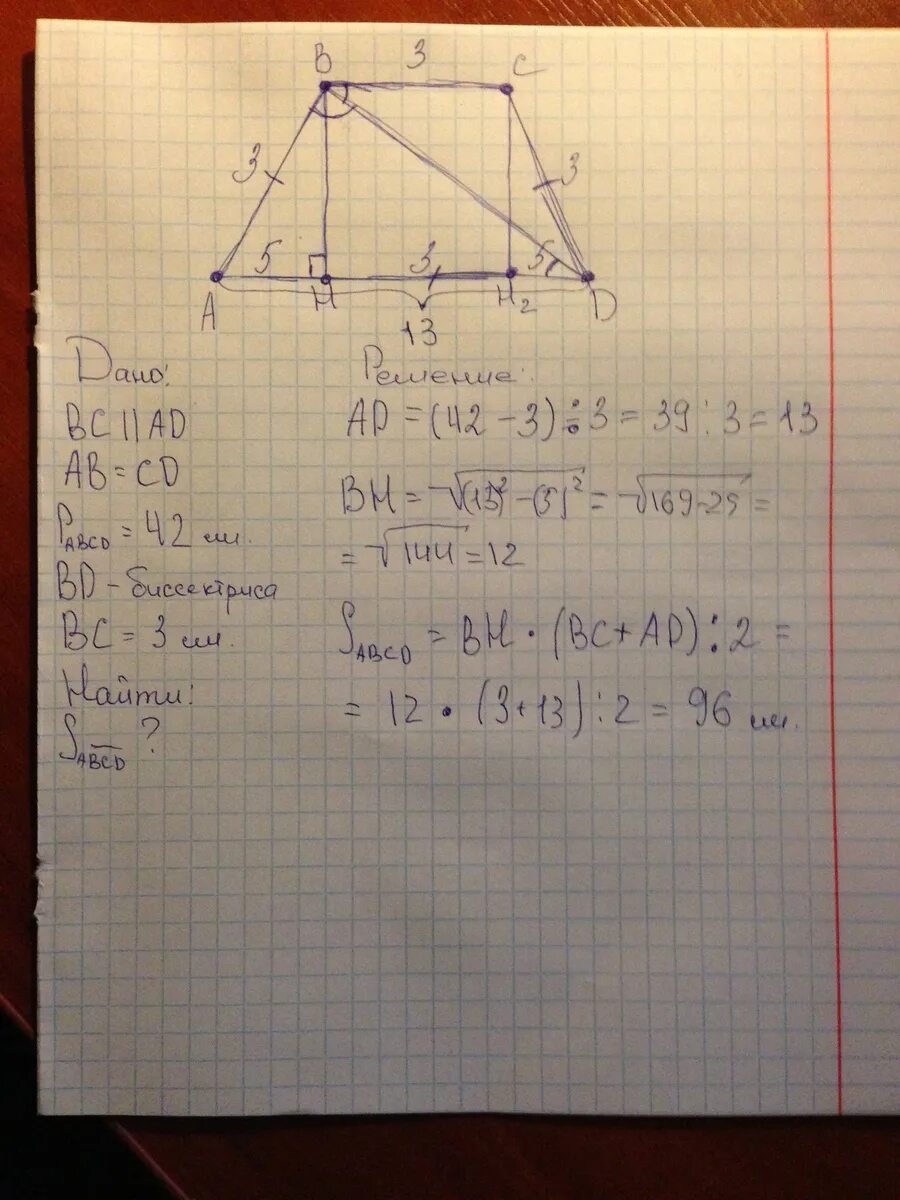 B 3 C
3 3
5 3 5
A H H₂ D
13
Дано:
BC || AD
AB = CD
P_ABCD = 42 см.
BD – биссектриса
BC = 3 см.
Найти:
S_ABCD ?
Решение:
AD = (42 – 3) ÷ 3 = 39 : 3 = 13
BH = √(13)² – (5)² = √169 – 25 =
= √144 = 12
S_ABCD = BH · (BC + AD) : 2 =
= 12 · (3 + 13) : 2 = 96 см.